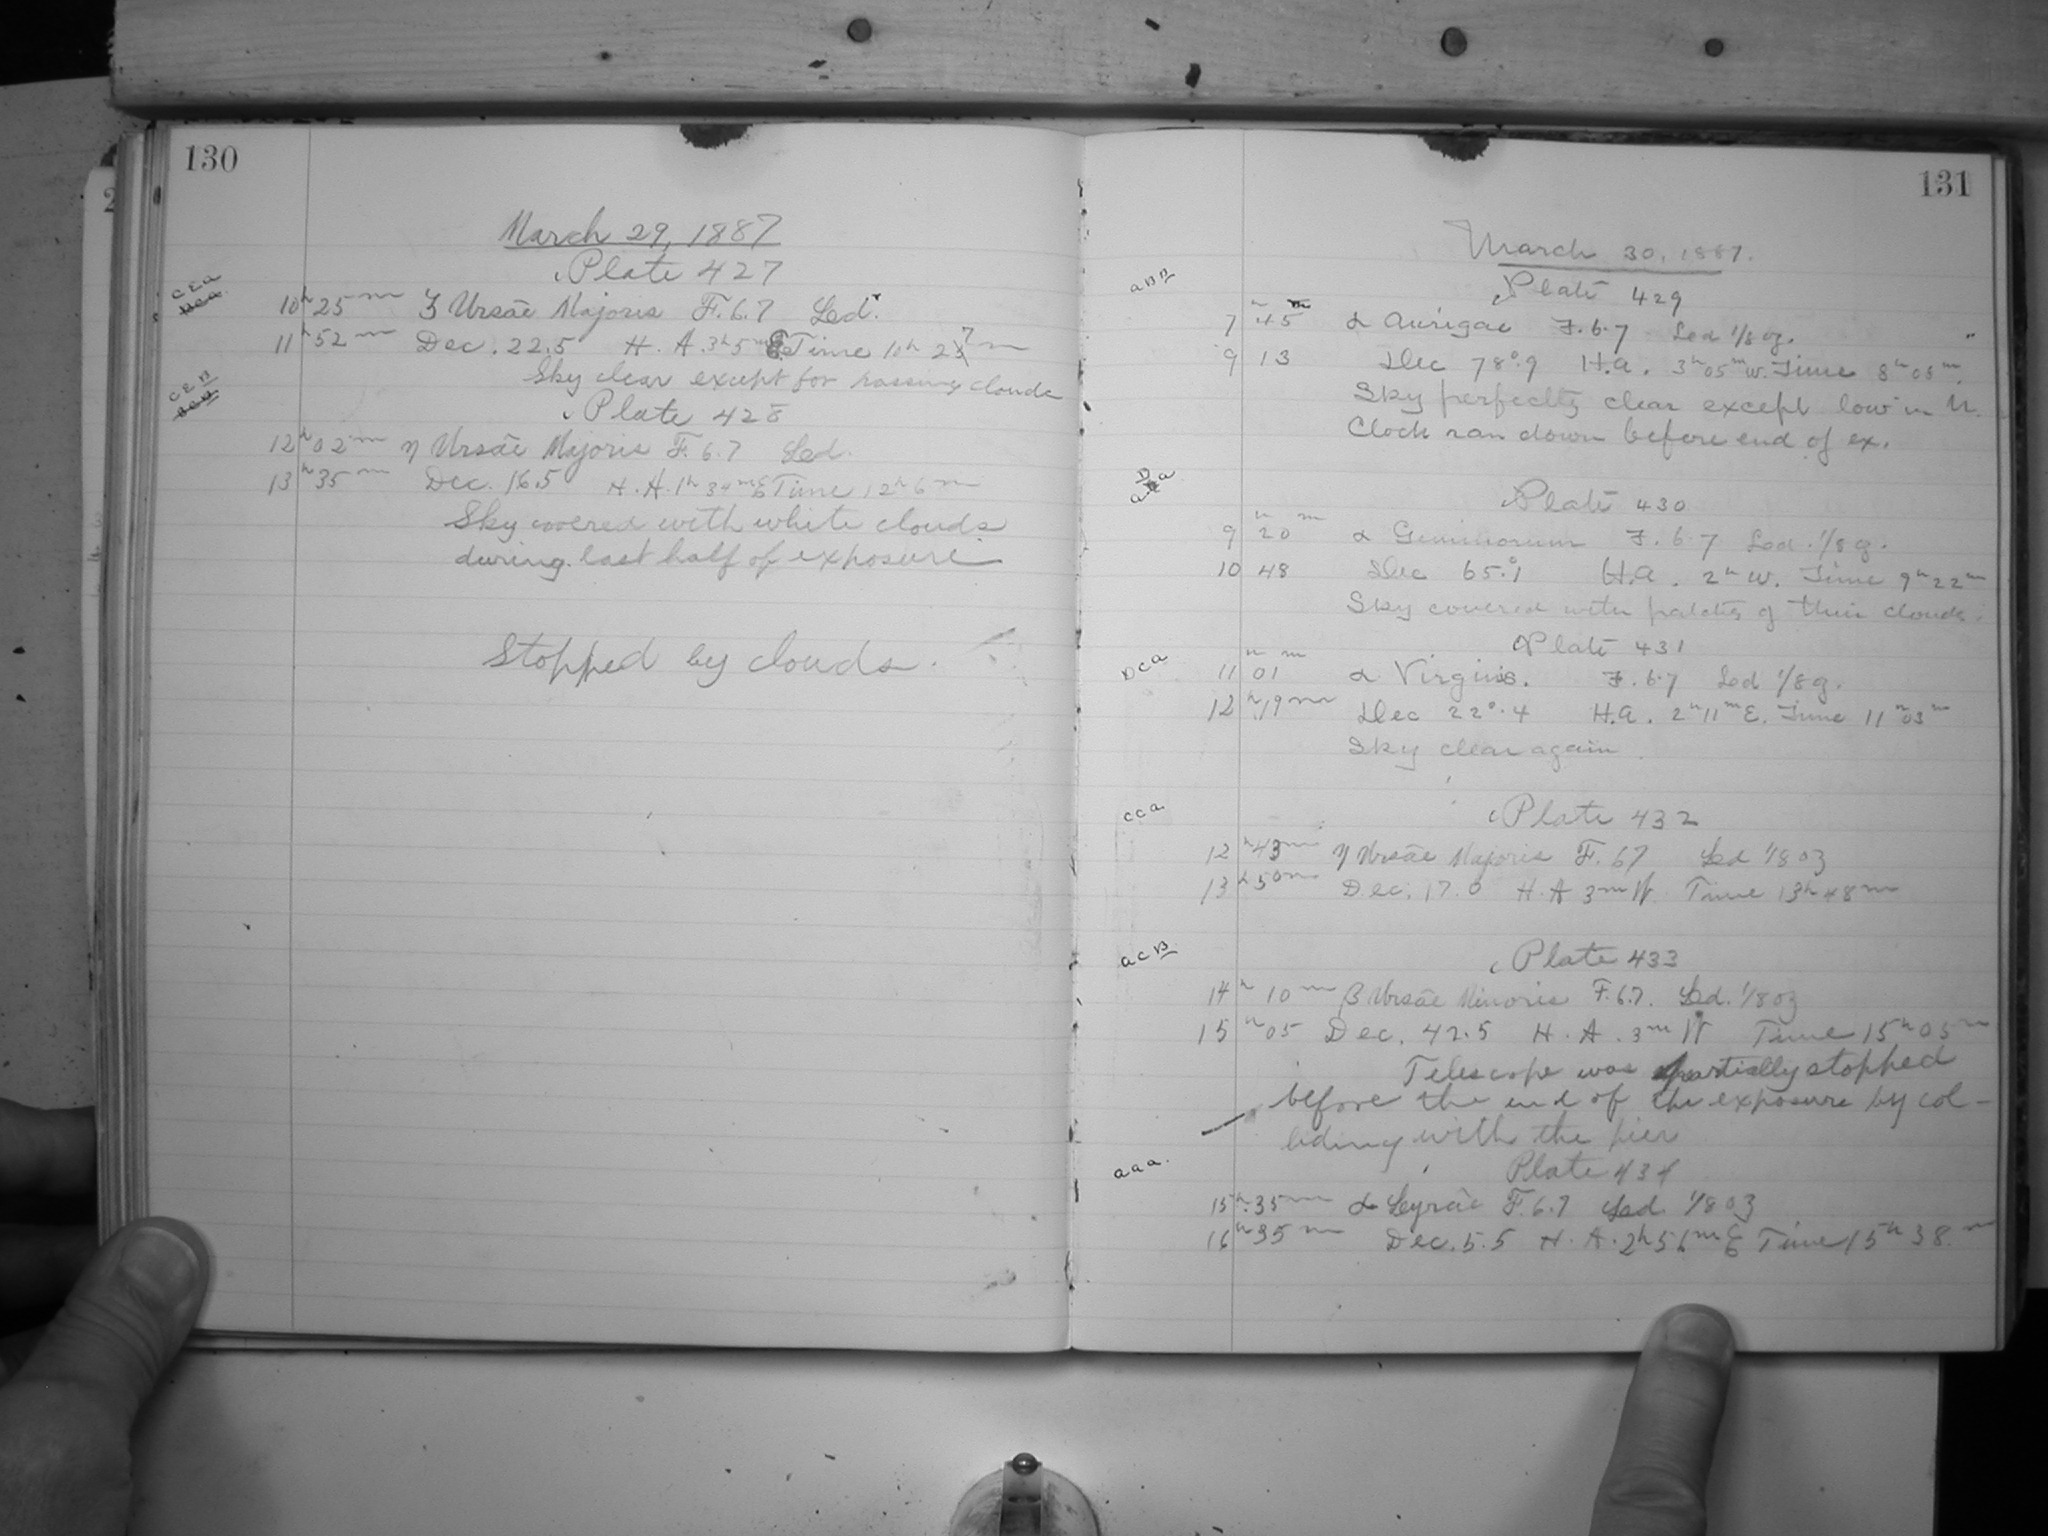 130
March 29, 1887
Plate 427
CEA
10h 25m ζ Ursae Majoris F. 6.7 Sed.
11h 52m Dec. 22.5 H. A. 3h5m E. Time 10h 27m
Sky clear except for passing clouds
CEB
Plate 428
12h 02m η Ursae Majoris F. 6.7 Sed.
13h 35m Dec. 16.5 H. A. 1h 34m E Time 12h 6m
Sky covered with white clouds
during last half of exposure
Stopped by clouds.
131
March 30, 1887.
aBB
Plate 429
7h 45m α Aurigae F. 6.7 Sed 1/8 oz.
9 13 Dec 78°.9 H.a. 3h05m W. Time 8h05m.
Sky perfectly clear except low in N.
Clock ran down before end of ex.
Plate 430
9h 20m α Geminorum F. 6.7 Sed. 1/8 oz.
10 48 Dec 65.°1 H.a. 2h W. Time 9h22m
Sky covered with patches of thin clouds.
Plate 431
DCa
11h 01m α Virginis. F. 6.7 Sed 1/8 oz.
12h 19m Dec 22°.4 H.a. 2h11m E. Time 11h03m
Sky clear again
cca
Plate 432
12h 43m η Ursae Majoris F. 67 Sed 1/8 oz
13h 50m Dec. 17.0 H. A 3m W. Time 13h 48m
acB
Plate 433
14h 10m β Ursae Minoris F. 6.7. Sed. 1/8 oz
15h 05 Dec. 42.5 H. A. 3m W Time 15h 05m
Telescope was partially stopped
before the end of the exposure by col-
liding with the pier
aaa.
Plate 434
15h 35m α Lyrae F. 6.7 Sed. 1/8 oz
16h 35m Dec. 5.5 H. A. 2h56m E Time 15h 38m